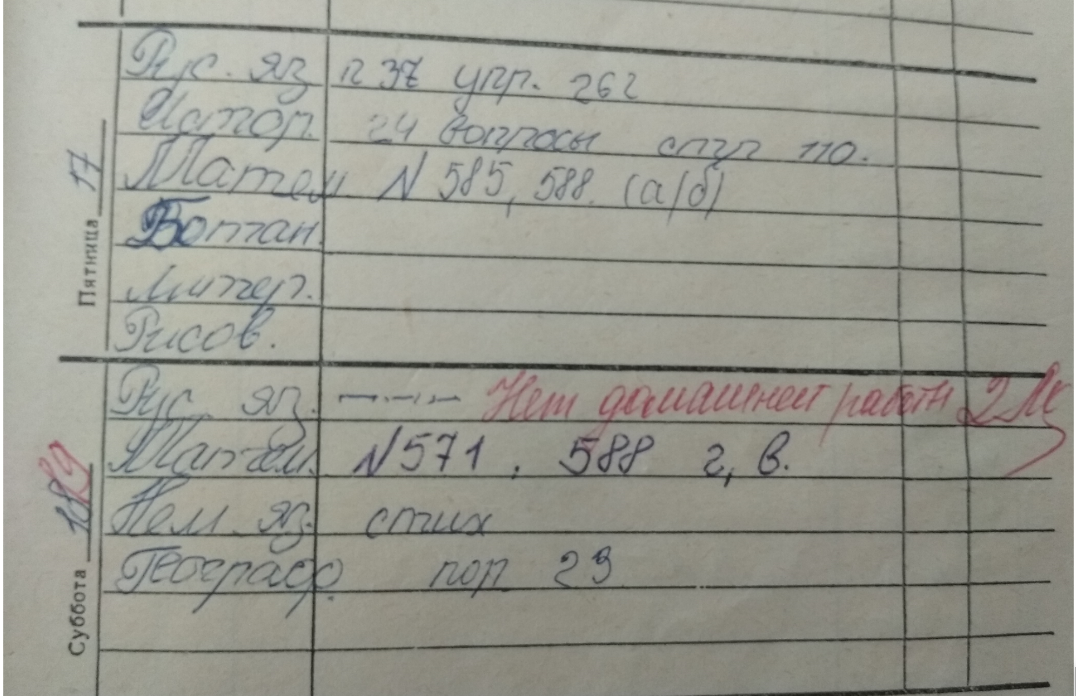 Пятница 17
Рус. яз. п 37 упр. 262
Истор. 24 вопросы стр 110.
Матем N 585, 588. (а/б)
Ботан.
Литер.
Рисов.
Суббота
Рус. яз. Нет домашней работы 2
Матем. N571, 588 г, в.
Нем. яз. стих
Географ. пор 23